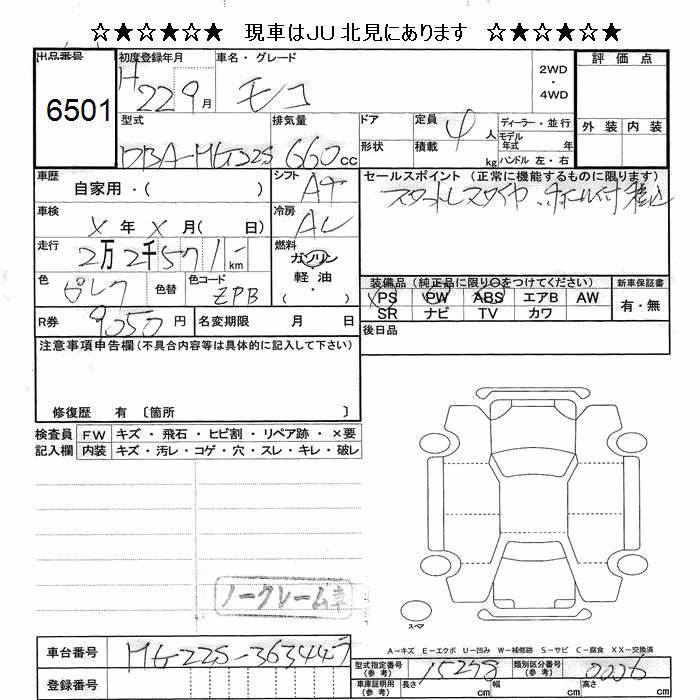 ☆★☆★☆★ 現車はJU北見にあります ☆★☆★☆★
出品番号 初度登録年月 車名・グレード 2WD ・ 4WD 評価点
6501 H 22 9月 モコ
型式 排気量 ドア 定員 4 人 ディーラー・並行 外装 内装
DBA-MG22S 660cc 形状 積載 kg モデル年式 年 ハンドル 左・右
車歴 自家用・( ) シフト AT セールスポイント (正常に機能するものに限ります)
スタットレスタイヤ ホイール付 積込
車検 X年 X月( 日) 冷房 AC
走行 2万2千571 km 燃料 ガソリン 軽油
色 ピンク 色替 色コード ZPB 装備品 (純正品に限り○をつけてください) 新車保証書
PS PW ABS エアB AW 有・無
SR ナビ TV カワ
R券 9050円 名変期限 月 日 後日品
注意事項申告欄(不具合内容等は具体的に記入して下さい)
修復歴 有 〔箇所 〕
検査員 FW キズ・飛石・ヒビ割・リペア跡・×要
記入欄 内装 キズ・汚レ・コゲ・穴・スレ・キレ・破レ
ノークレーム車
スペア
A-キズ E-エクボ U-凹み W-補修跡 S-サビ C-腐食 XX-交換済
車台番号 MG22S-363447 型式指定番号(参考) 15278 類別区分番号(参考) 0026
登録番号 車庫証明用(参考) 長さ cm 幅 cm 高さ cm